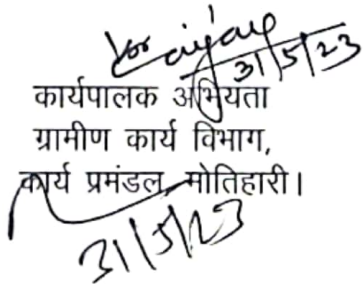 31/5/23
कार्यपालक अभियता
ग्रामीण कार्य विभाग,
कार्य प्रमंडल, मोतिहारी।
31/5/23